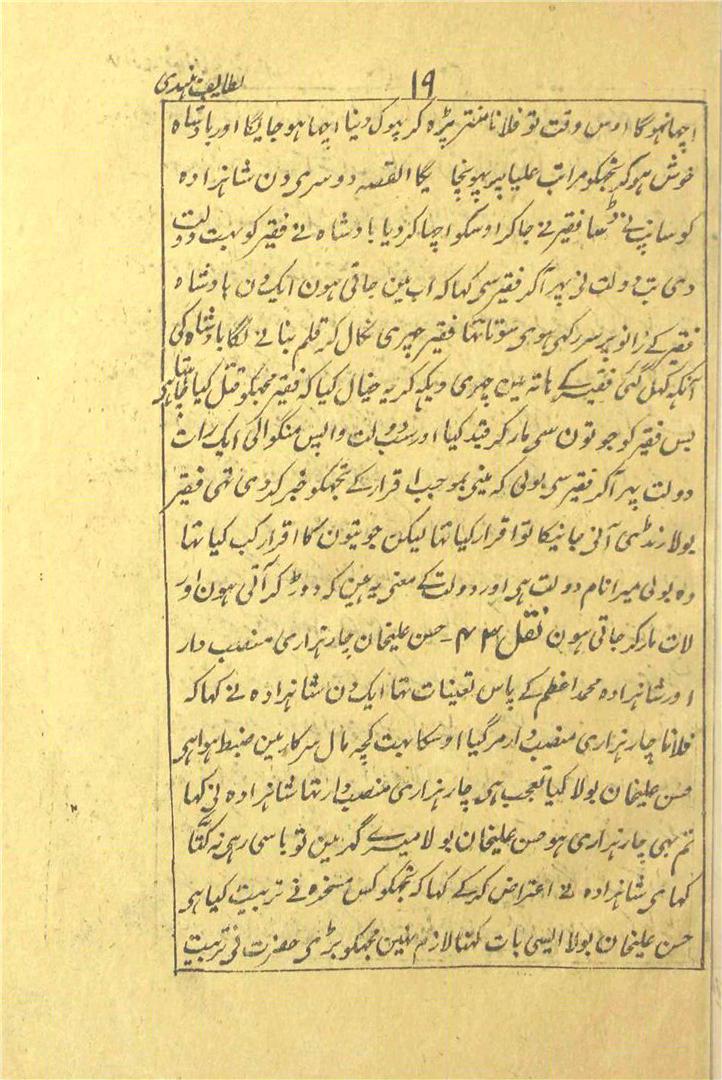 ۱۹
لطایف ہندی
اچہا نہوگا اوس وقت تو فلانا منتر پڑہ کر پہوک دینا اچہا ہو جایگا اور بادشاہ
خوش ہو کر تجہکو مراتب علیا پر پہونچا یگا القصہ دوسری دن شاہزادہ
کو سانپ نے ڈسا فقیر نے جا کر اوسکو اچہا کر دیا بادشاہ نے فقیر کو بہت دولت
دی تب دولت نی پہر آکر فقیر سی کہا کہ اب مین جاتی ہون ایک دن بادشاہ
فقیر کے زانو پر سر رکہی ہوی سوتا تہا فقیر چہری نکال کہ قلم بنانے لگا بادشاہ کی
آنکہہ کہل گئی فقیر کے ہاتہ مین چہری دیکہہ کر یہ خیال کیا کہ فقیر مجہکو قتل کیا چاہتا ہی
بس فقیر کو جوتون سی مار کر قید کیا اور سب دولت واپس منگوالی ایک رات
دولت پہر آکر فقیر سی بولی کہ مینی بموجب اقرار کے تجہکو خبر کر دی تہی فقیر
بولا رنڈی آنی جانیکا تو اقرار کیا تہا لیکن جوتیون کا اقرار کب کیا تہا
وہ بولی میرا نام دولت ہی اور دولت کے معنی یہ ہین کہ دوڑ کر آتی ہون اور
لات مار کر جاتی ہون نقل ۴۳ - حسن علیخان چار ہزاری منصب دار
اور شاہزادہ محمد اعظم کے پاس تعینات تہا ایک دن شاہزادہ نے کہا کہ
فلانا چار ہزاری منصب دار مر گیا اوسکا بہت کچہ مال سرکار مین ضبط ہوا ہی
حسن علیخان بولا کیا تعجب ہی چار ہزاری منصب دار تہا شاہزادہ نی کہا
تم بہی چار ہزاری ہو حسن علیخان بولا میرے گہر مین تو باسی رہی نہ کتّا
کہا ی شاہزادہ نے اعتراض کر کے کہا کہ تجہکو کس مسخرہ نے تربیت کیا ہی
حسن علیخان بولا ایسی بات کہنا لازم نہین مجہکو بڑی حضرت نی تربیت